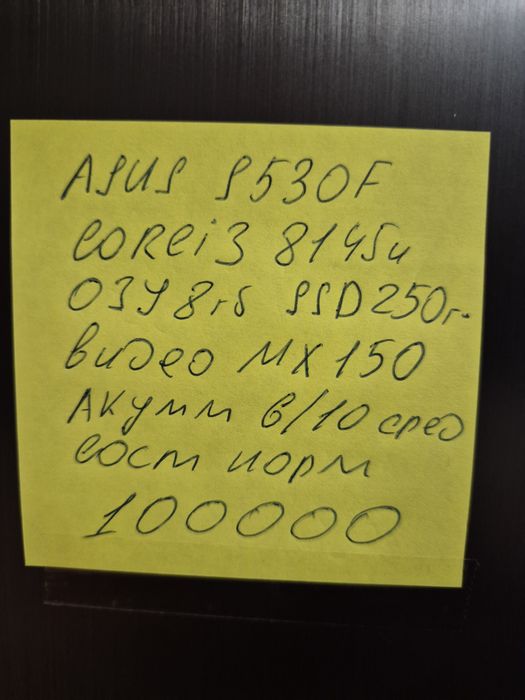 ASUS S530F
CORE i3 8145u
ОЗУ 8гб SSD 250г.
видео MX 150
Акумм 6/10 сред
сост норм
100000